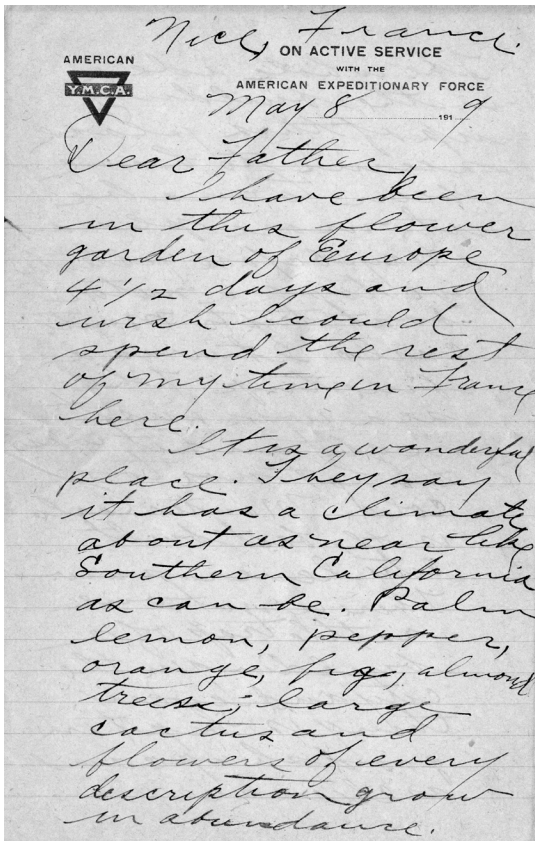 Nice, France
AMERICAN
Y.M.C.A.
ON ACTIVE SERVICE
WITH THE
AMERICAN EXPEDITIONARY FORCE
May 8 1919
Dear Father,
I have been
in this flower
garden of Europe
4 1/2 days and
wish I could
spend the rest
of my time in France
here.
It is a wonderful
place. They say
it has a climate
about as near like
Southern California
as can be. Palm
lemon, pepper,
orange, fig, almond
trees; large
cactus and
flowers of every
description grow
in abundance.